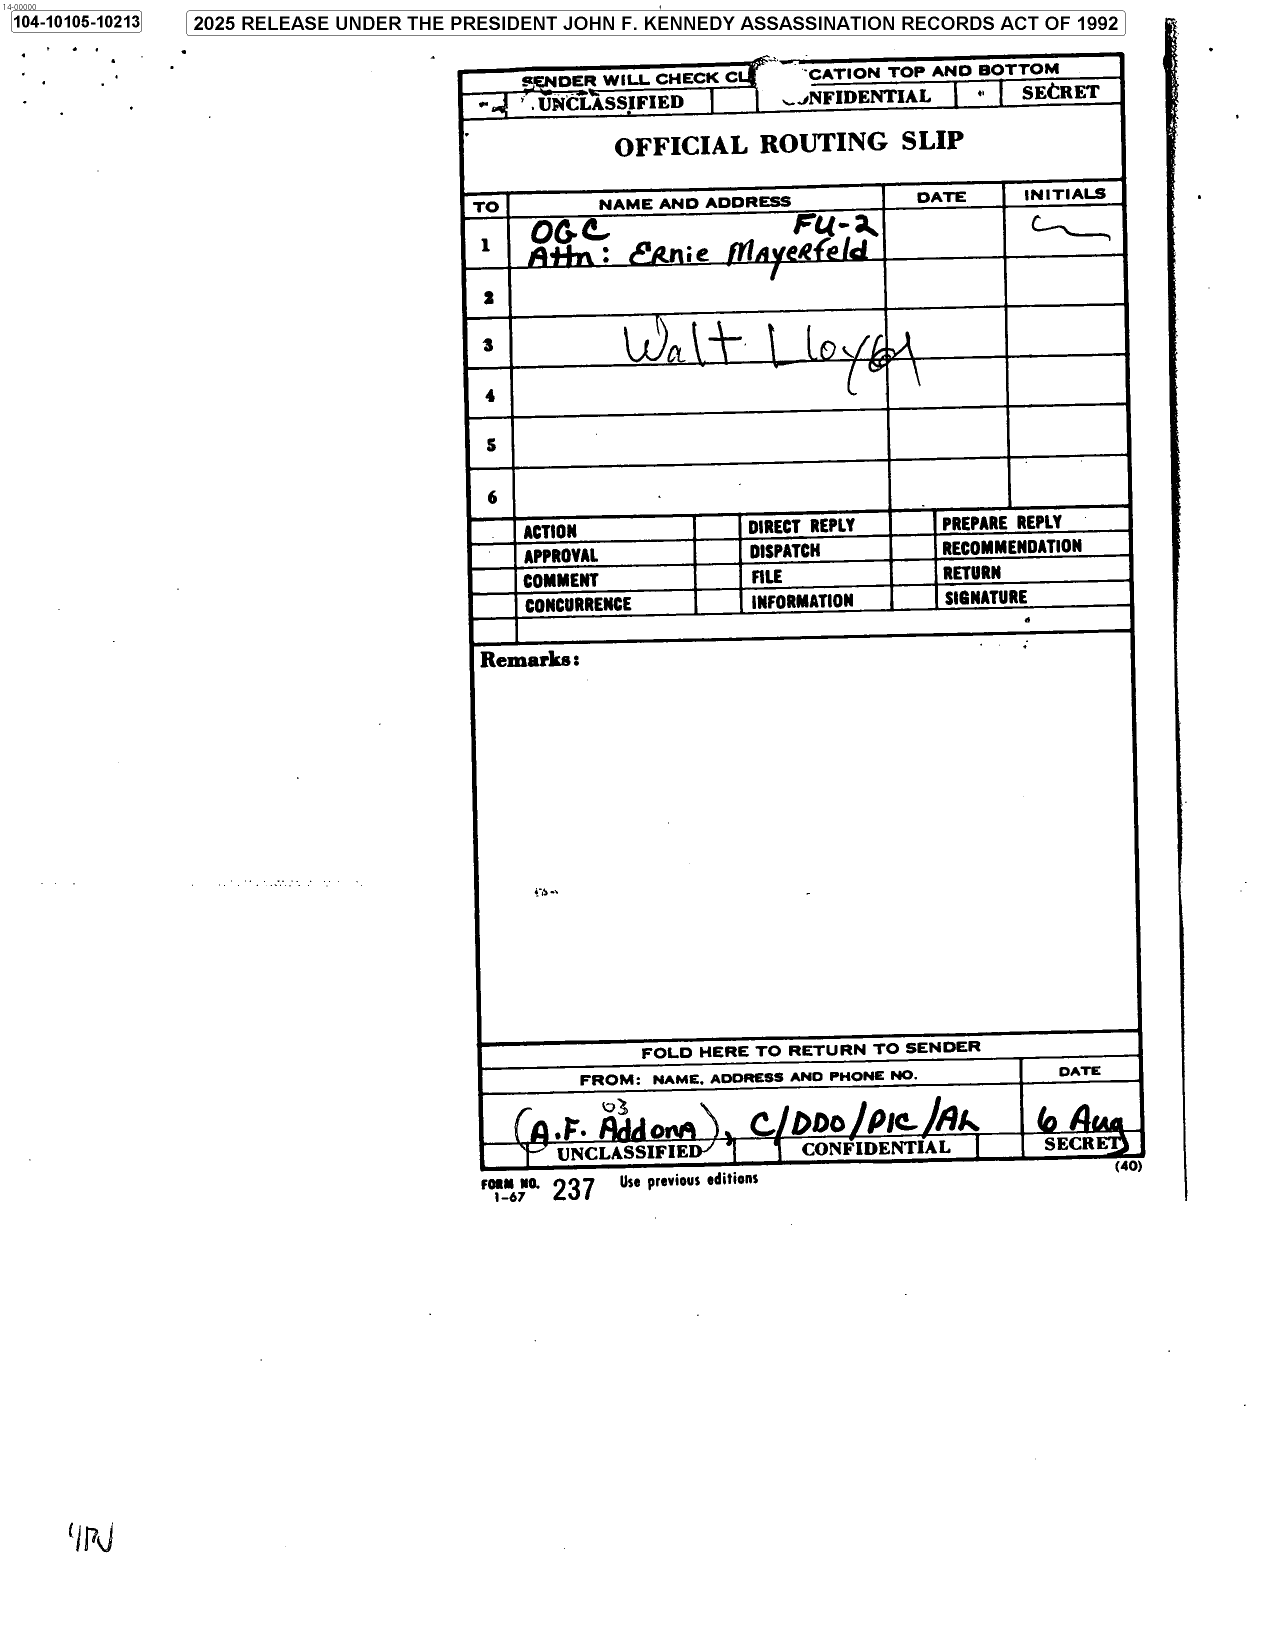 14-00000
104-10105-10213
2025 RELEASE UNDER THE PRESIDENT JOHN F. KENNEDY ASSASSINATION RECORDS ACT OF 1992
SENDER WILL CHECK CL CATION TOP AND BOTTOM
UNCLASSIFIED NFIDENTIAL SECRET
OFFICIAL ROUTING SLIP
TO NAME AND ADDRESS DATE INITIALS
1 OGC FU-2
Attn: Ernie Mayerfeld
2
3 Walt Lloyd
4
5
6
ACTION DIRECT REPLY PREPARE REPLY
APPROVAL DISPATCH RECOMMENDATION
COMMENT FILE RETURN
CONCURRENCE INFORMATION SIGNATURE
Remarks:
FOLD HERE TO RETURN TO SENDER
FROM: NAME, ADDRESS AND PHONE NO. DATE
03
(A.F. Addona), C/DDO/PIC/Ah 6 Aug
UNCLASSIFIED CONFIDENTIAL SECRET
(40)
FORM NO. 237 Use previous editions
1-67